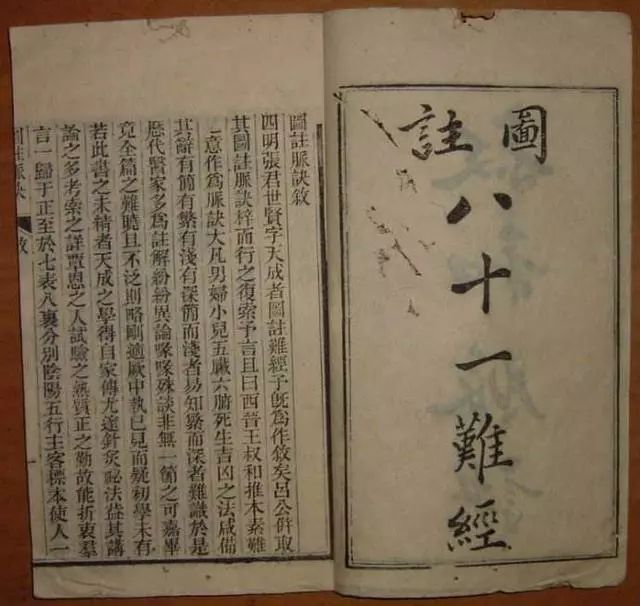 圖註
八十一難經
圖註脈訣敘
四明張君世賢字天成者圖註難經予旣為作敘矣呂公併取
其圖註脈訣梓而行之復索予言且曰西晉王叔和推本素難
之意作為脈訣大凡男婦小兒五臟六腑死生吉凶之法咸備
其辭有簡有繁有淺有深簡而淺者易知繁而深者難識於是
歷代醫家多為註解紛紛異論喙喙殊談非無一節之可嘉畢
竟全篇之難曉且不泛則略剛適厥中執已見而疑初學未有
若此書之未精者天成之學得自家傳尤達針灸祕法益其講
論之多考索之詳覃思之人試驗之熟質正之勤故能折衷羣
言一歸于正至於七表八裏分別陰陽五行主客標本使人一
圖註脈訣 敘